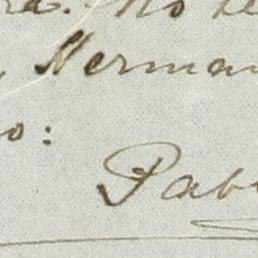 ra. No le
, Herman
o:
Pab